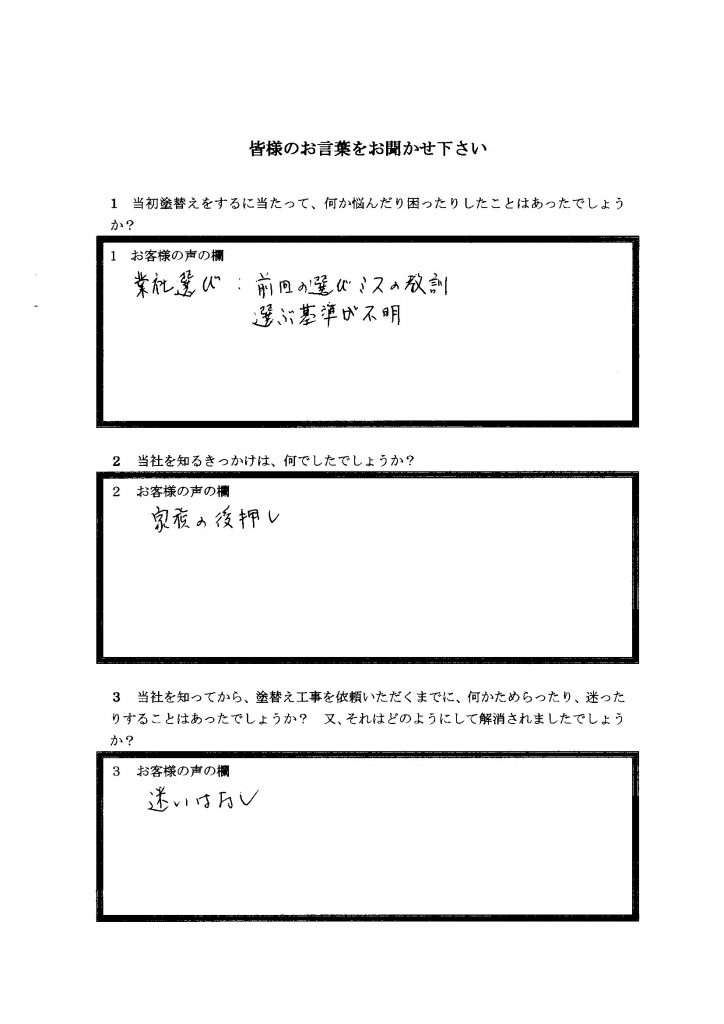 皆様のお言葉をお聞かせ下さい
1　当初塗替えをするに当たって、何か悩んだり困ったりしたことはあったでしょう
か？
1　お客様の声の欄
業社選び：前回の選びミスの教訓
選ぶ基準が不明
2　当社を知るきっかけは、何でしたでしょうか？
2　お客様の声の欄
家族の後押し
3　当社を知ってから、塗替え工事を依頼いただくまでに、何かためらったり、迷った
りすることはあったでしょうか？　又、それはどのようにして解消されましたでしょう
か？
3　お客様の声の欄
迷いはなし